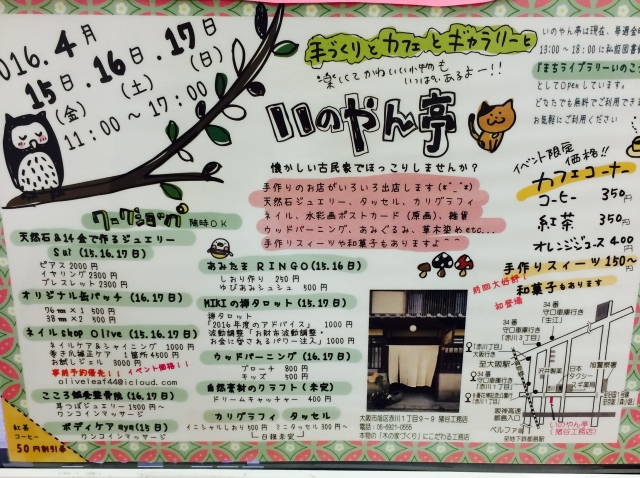 2016.4月
15日.16日.17日
(金) (土) (日)
11:00〜17:00
手づくりとカフェとギャラリーと
楽しくてかわいい小物も
いっぱいあるよー!!
いのやん亭
懐かしい古民家でほっこりしませんか?
手作りのお店がいろいろ出店します
天然石ジュエリー、タッセル、カリグラフィ
ネイル、水彩画ポストカード(原画)、雑貨
ウッドバーニング、あみぐるみ、草木染めetc...
手作りスィーツや和菓子もありますよ^^
いのやん亭は現在、毎週金
13:00〜18:00に私設図書
『まちライブラリーいのこ
としてOpenしています。
どなたでも無料でご利用でき
お気軽にご利用ください
イベント限定
価格!!
カフェコーナー
コーヒー 350円
紅茶 350円
オレンジジュース 400
手作りスィーツ 150〜
和菓子もあります
前回大好評!
初登場
ワークショップ 随時OK
天然石&14金で作るジュエリー
Sui (15.16.17日)
ピアス 2000円
イヤリング 2300円
ブレスレット 2300円
オリジナル缶バッチ (16.17日)
76㎜×1 500円
38㎜×2 500円
ネイルshop Olive (15.16.17日)
ネイルケア&シャイニング 1000円
巻き爪補正ケア 1箇所 4500円
お試しジェル 3000円
事前予約優先!! イベント価格!!
oliveleaf44@icloud.com
こころ鍼灸整骨院 (17日)
耳つぼジュエリー 1500円〜
ワンコインマッサージ
ボディケアaya(15日)
ワンコインマッサージ
あみたま RINGO (15.16日)
しおり作り 250円
ゆびあみシュシュ 500円
MIKIの禅タロット (17日)
禅タロット
「2016年度のアドバイス」 1000円
波動調整・「お財布波動調整・
お金に愛されるパワー注入」 1000円
ウッドバーニング (16.17日)
ブローチ 800円
キッズ 500円
自然素材のクラフト (未定)
ドリームキャッチャー 400円
カリグラフィ タッセル
イニシャルしおり 500円 ミニタッセル 300円〜
日程未定
紅茶
コーヒー
50円割引券
大阪市旭区赤川1丁目9−9 猪谷工務店
電話:06-6921-0555
本物の「木の家づくり」にこだわる工務店
34番
守口車庫行き
「生江」
34番
守口車庫行き
「赤川3丁目」
「赤川1丁目」
大阪行き
至大阪駅
34番
守口車庫行き
「赤川1丁目」
沢井製薬
日本
タクシー
旭警察署
阪神高速
都島入口
ベルファ
至地下鉄都島駅
いのやん亭
(猪谷工務店)